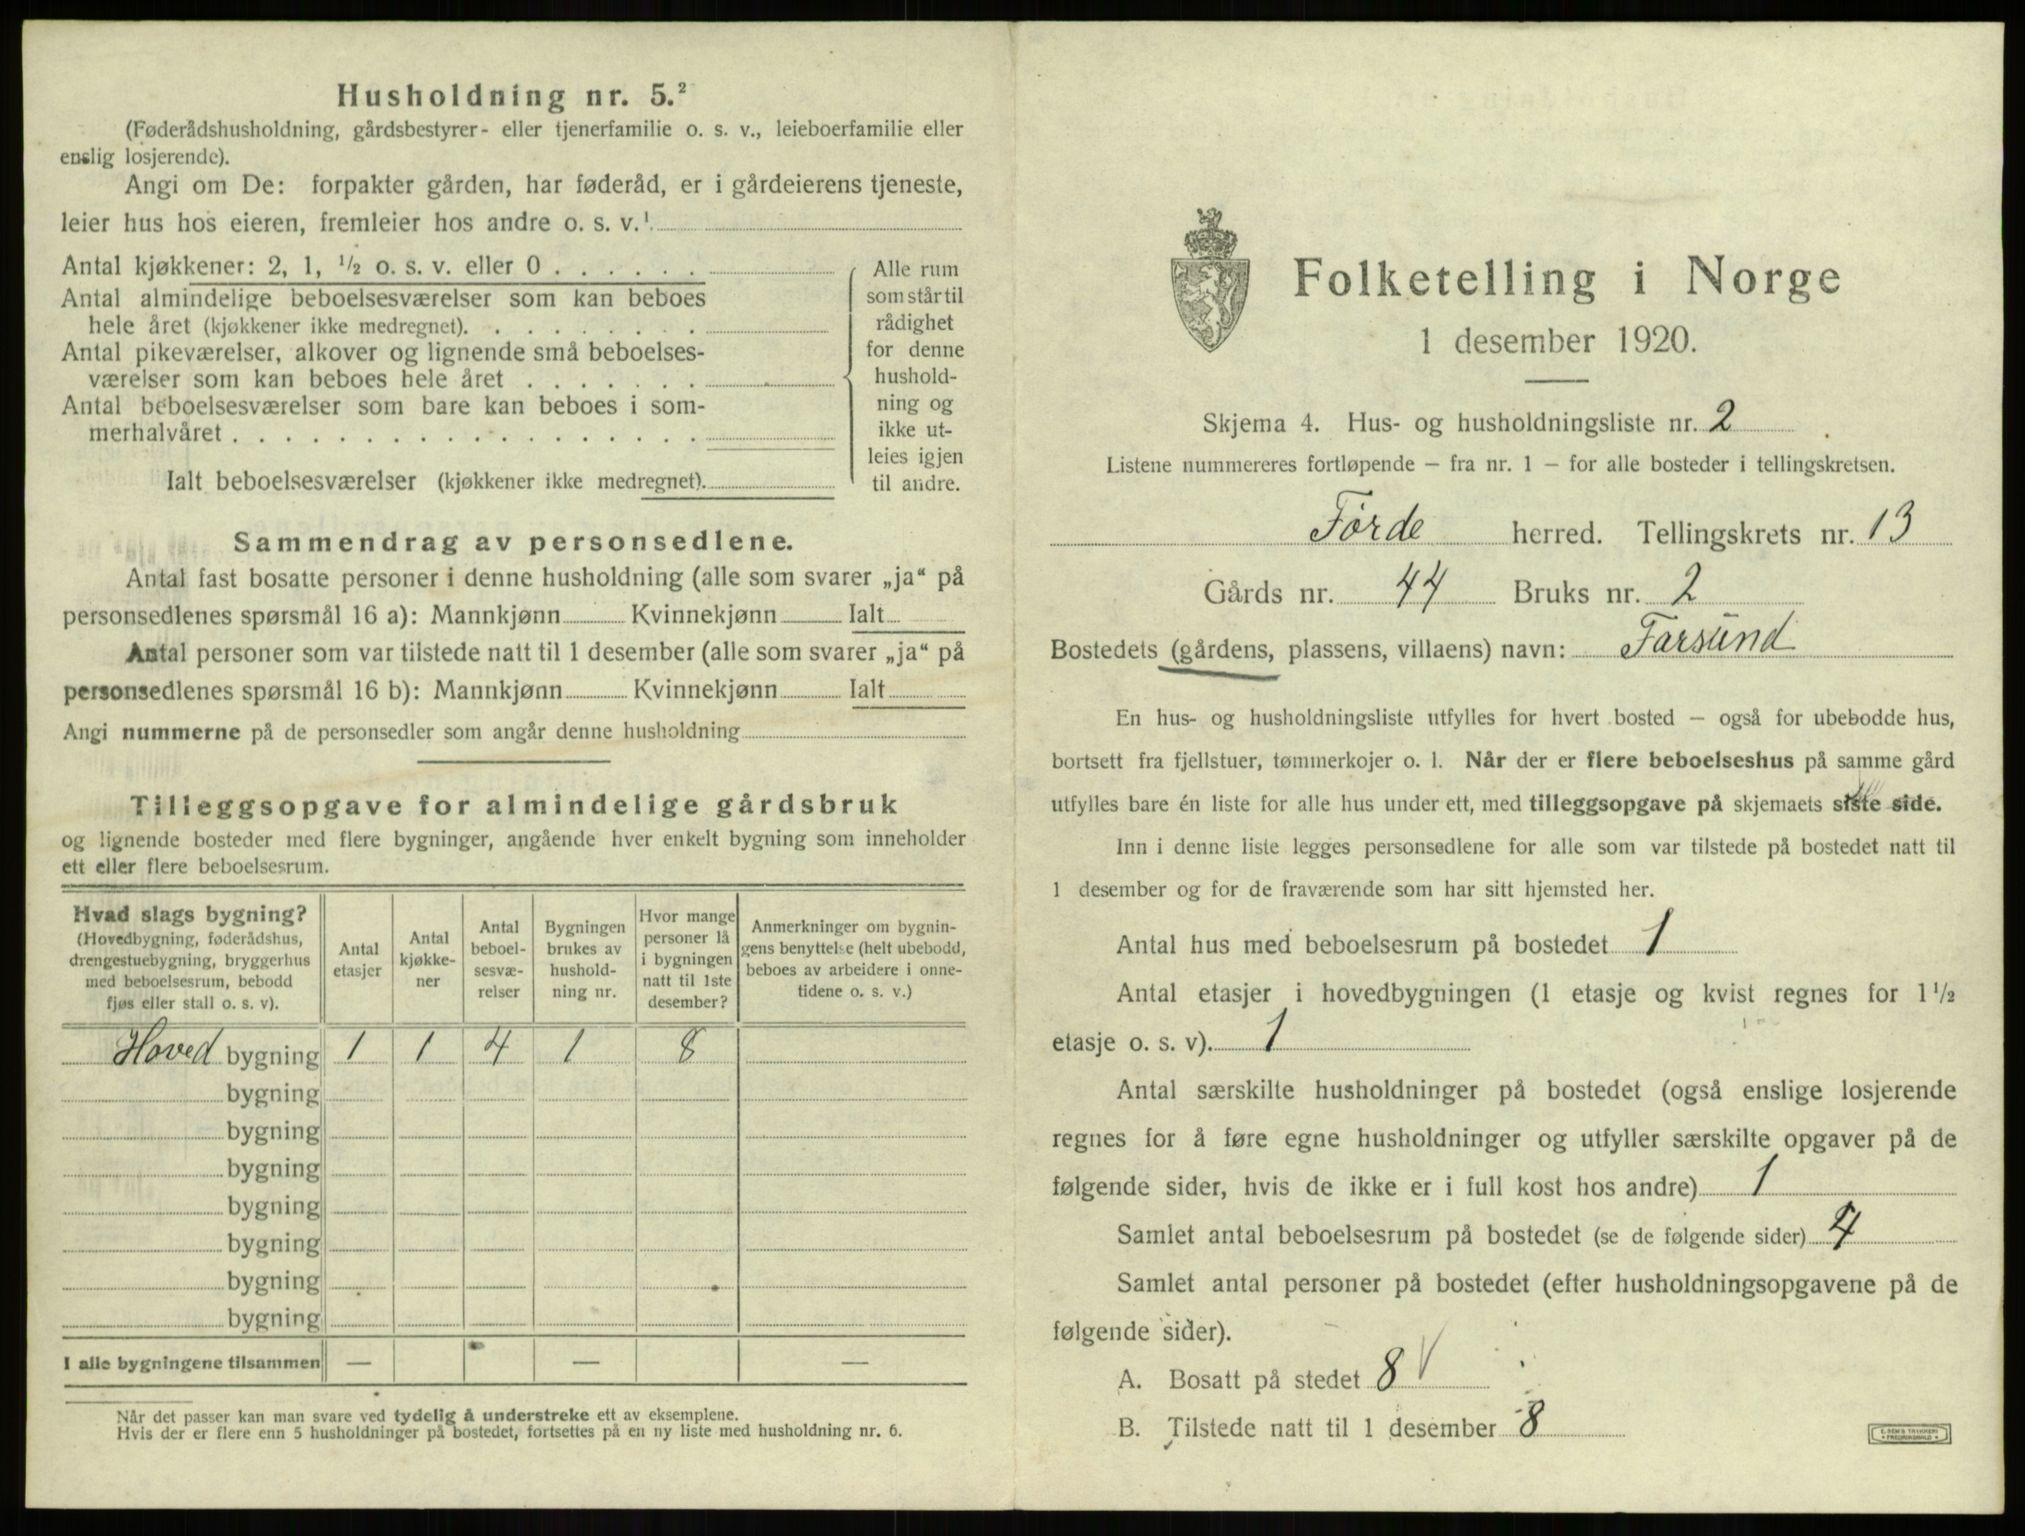 Husholdning nr. 5.²
(Føderådshusholdning, gårdsbestyrer- eller tjenerfamilie o. s. v., leieboerfamilie eller
enslig losjerende).
Angi om De: forpakter gården, har føderåd, er i gårdeierens tjeneste,
leier hus hos eieren, fremleier hos andre o. s. v.¹
Antal kjøkkener: 2, 1, ½ o. s. v. eller 0 . . . . . .
Antal almindelige beboelsesværelser som kan beboes
hele året (kjøkkener ikke medregnet). . . . . . . . .
Antal pikeværelser, alkover og lignende små beboelses-
værelser som kan beboes hele året . . . . . . .
Antal beboelsesværelser som bare kan beboes i som-
merhalvåret . . . . . . . . . . . . . . . . . .
Ialt beboelsesværelser (kjøkkener ikke medregnet).
Alle rum
som står til
rådighet
for denne
hushold-
ning og
ikke ut-
leies igjen
til andre.
Sammendrag av personsedlene.
Antal fast bosatte personer i denne husholdning (alle som svarer „ja“ på
personsedlenes spørsmål 16 a): Mannkjønn Kvinnekjønn Ialt
Antal personer som var tilstede natt til 1 desember (alle som svarer „ja“ på
personsedlenes spørsmål 16 b): Mannkjønn Kvinnekjønn Ialt
Angi nummerne på de personsedler som angår denne husholdning
Tilleggsopgave for almindelige gårdsbruk
og lignende bosteder med flere bygninger, angående hver enkelt bygning som inneholder
ett eller flere beboelsesrum.
Hvad slags bygning?
(Hovedbygning, føderådshus,
drengestuebygning, bryggerhus
med beboelsesrum, bebodd
fjøs eller stall o. s. v).
Antal
etasjer
Antal
kjøkke-
ner
Antal
beboel-
sesvæ-
relser
Bygningen
brukes av
hushold-
ning nr.
Hvor mange
personer lå
i bygningen
natt til 1ste
desember?
Anmerkninger om bygnin-
gens benyttelse (helt ubebodd,
beboes av arbeidere i onne-
tidene o. s. v.)
Hoved bygning 1 1 4 1 8
bygning
bygning
bygning
bygning
bygning
bygning
bygning
I alle bygningene tilsammen — — —
Når det passer kan man svare ved tydelig å understreke ett av eksemplene.
Hvis der er flere enn 5 husholdninger på bostedet, fortsettes på en ny liste med husholdning nr. 6.
Folketelling i Norge
1 desember 1920.
Skjema 4. Hus- og husholdningsliste nr. 2
Listene nummereres fortløpende – fra nr. 1 – for alle bosteder i tellingskretsen.
Førde herred. Tellingskrets nr. 13
Gårds nr. 44 Bruks nr. 2
Bostedets (gårdens, plassens, villaens) navn: Farsund
En hus- og husholdningsliste utfylles for hvert bosted – også for ubebodde hus,
bortsett fra fjellstuer, tømmerkojer o. l. Når der er flere beboelseshus på samme gård
utfylles bare én liste for alle hus under ett, med tilleggsopgave på skjemaets siste side.
Inn i denne liste legges personsedlene for alle som var tilstede på bostedet natt til
1 desember og for de fraværende som har sitt hjemsted her.
Antal hus med beboelsesrum på bostedet 1
Antal etasjer i hovedbygningen (1 etasje og kvist regnes for 1 ½
etasje o. s. v). 1
Antal særskilte husholdninger på bostedet (også enslige losjerende
regnes for å føre egne husholdninger og utfyller særskilte opgaver på de
følgende sider, hvis de ikke er i full kost hos andre) 1
Samlet antal beboelsesrum på bostedet (se de følgende sider) 4
Samlet antal personer på bostedet (efter husholdningsopgavene på de
følgende sider).
A. Bosatt på stedet 8
B. Tilstede natt til 1 desember 8